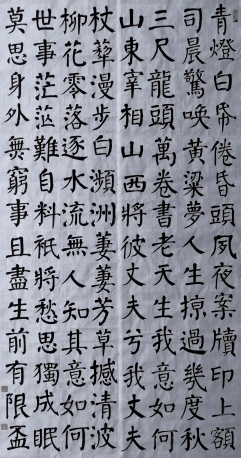 青燈白帋倦昏頭夙夜案牘印上額
司晨驚喚黃粱夢人生掠過幾度秋
三尺龍頭萬卷書老天生我意如何
山東宰相山西將彼丈夫兮我丈夫
杖藜漫步白瀕洲萋萋芳草撼清波
柳花零落逐水流無人知其意如何
世事茫茫難自料衹將愁思獨成眠
莫思身外無窮事且盡生前有限盃